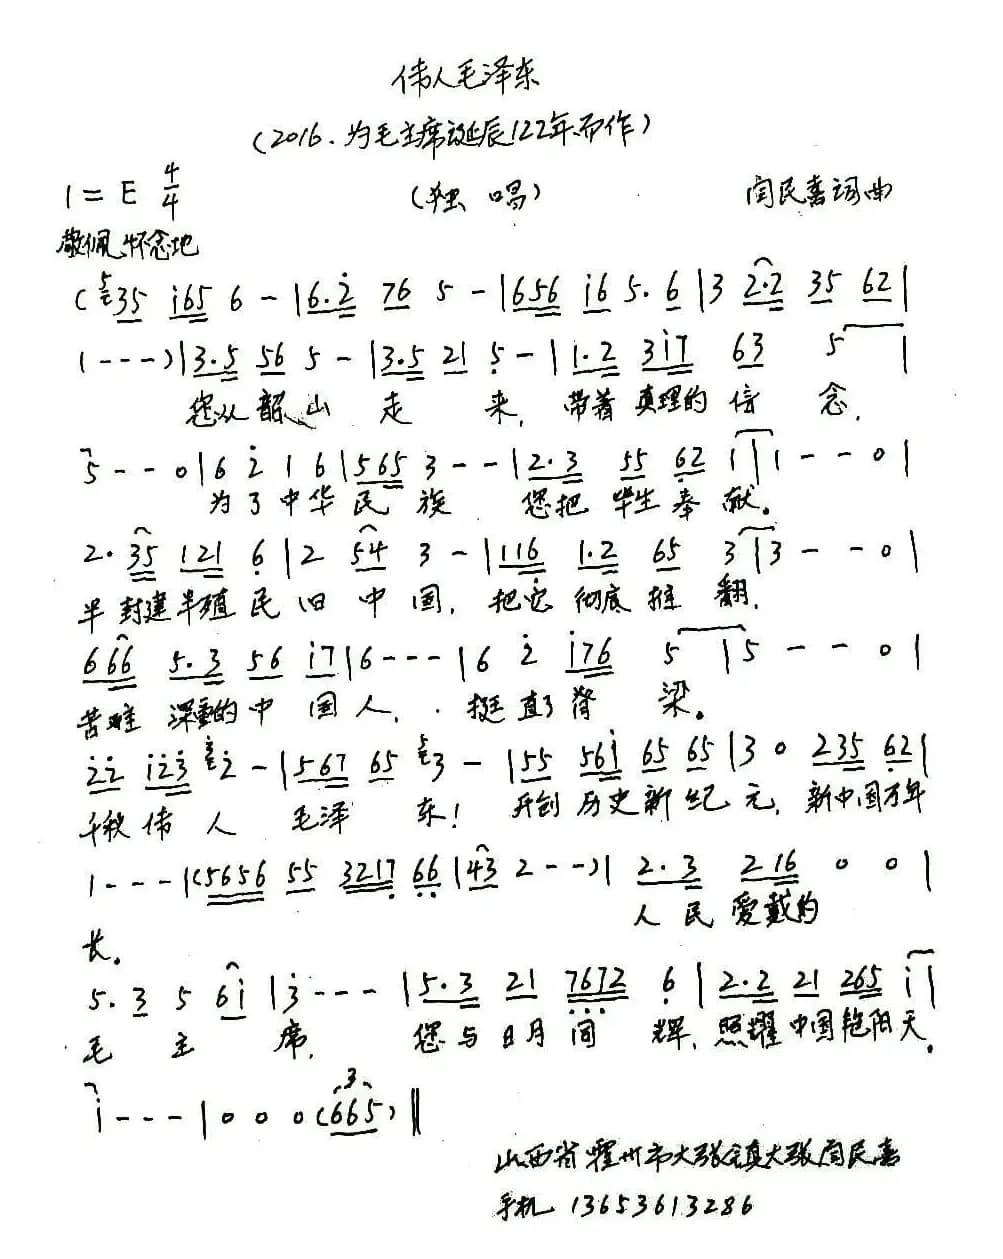 伟人毛泽东
(2016.为毛主席诞辰122年而作)
1=E 4/4 (独唱) 闫民喜词曲
敬佩怀念地
(35 i65 6 - |6.2 76 5 - |656 i6 5.6 |3 2.2 35 62|
1---)|3.5 56 5 - |3.5 21 5 - |1.2 3i7 63 5 |
您从韶山走来,带着真理的信念,
5 - - 0|6 2 1 6|565 3 - - |2.3 55 62 1|1 - - 0|
为了中华民族 您把毕生奉献。
2. 35 121 6|2 54 3 - |116 1.2 65 3|3 - - 0|
半封建半殖民旧中国,把它彻底推翻,
666 5.3 56 i7|6---|6 2 i76 5|5 - - 0|
苦难深重的中国人,挺直了脊梁。
22 i23 2 - |567 65 3 - |55 56i 65 65|3 0 235 62|
千秋伟人毛泽东!开创历史新纪元,新中国万年
1---|(5656 55 3217 66|43 2--)|2.3 216 0 0|
人民爱戴的
长。
5.3 5 6i|3---|5.3 21 7672 6|2.2 21 265 i|
毛主席,您与日月同辉,照耀中国艳阳天。
i---|0 0 0(665)‖
3
山西省霍州市大张镇大张闫民喜
手机 13653613286